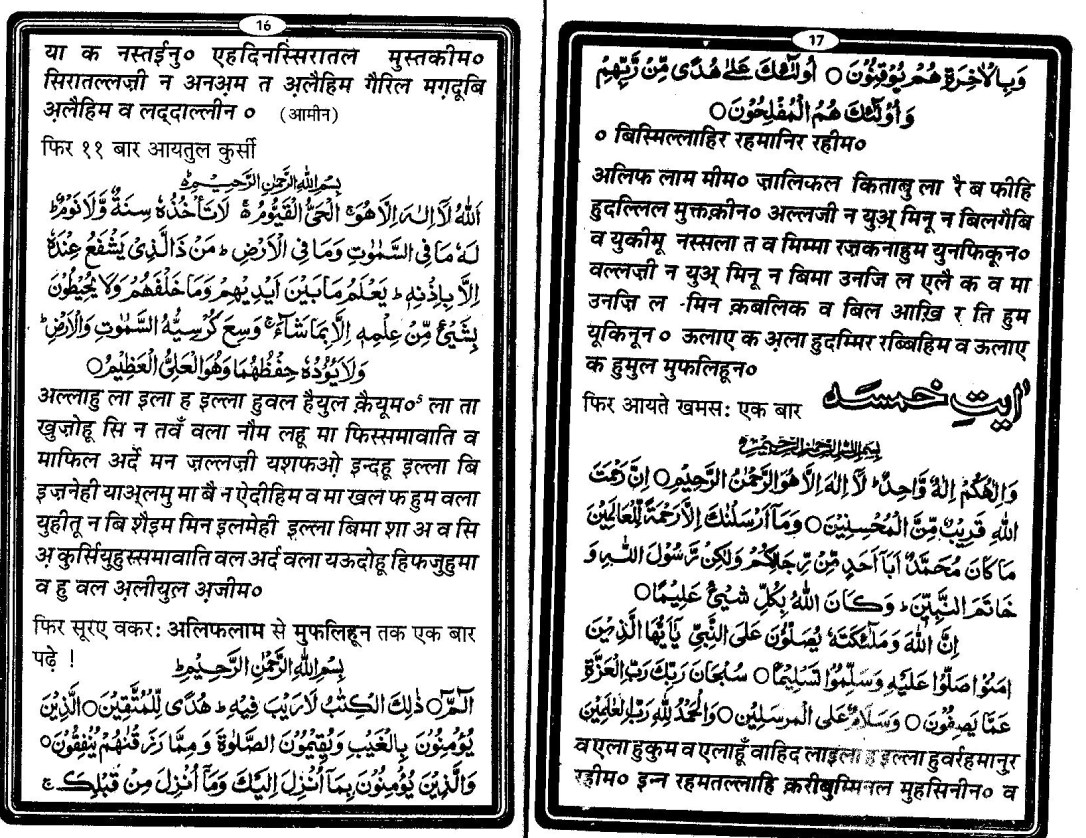 16
या क नस्तईनु० एहदिनस्सिरातल मुस्तकीम०
सिरातल्लज़ी न अनअ़म त अ़लैहिम गैरिल मग़दूबि
अ़लैहिम व लद्दाल्लीन ० (आमीन)
फिर ११ बार आयतुल कुर्सी
بِسْمِ اللهِ الرَّحْمٰنِ الرَّحِيْمِ
اَللهُ لَآ اِلٰهَ اِلَّا هُوَ ۚ الْحَيُّ الْقَيُّوْمُ ۚ لَا تَأْخُذُهٗ سِنَةٌ وَّلَا نَوْمٌ ؕ
لَهٗ مَا فِي السَّمٰوٰتِ وَمَا فِي الْاَرْضِ ؕ مَنْ ذَا الَّذِيْ يَشْفَعُ عِنْدَهٗ
اِلَّا بِاِذْنِهٖ ؕ يَعْلَمُ مَا بَيْنَ اَيْدِيْهِمْ وَمَا خَلْفَهُمْ وَلَا يُحِيْطُوْنَ
بِشَيْءٍ مِّنْ عِلْمِهٖ اِلَّا بِمَا شَآءَ ۚ وَسِعَ كُرْسِيُّهُ السَّمٰوٰتِ وَالْاَرْضَ ؕ
وَلَا يَؤُدُهٗ حِفْظُهُمَا وَهُوَ الْعَلِيُّ الْعَظِيْمُ○
अल्लाहु ला इला ह इल्ला हुवल हैयुल क़ैयूम०⁵ ला ता
खुज़ोहू सि न तवँ वला नौम लहू मा फिस्समावाति व
माफिल अर्दे मन ज़ल्लज़ी यशफओ़ इन्दहू इल्ला बि
इज़नेही याअ़लमु मा बै न ऐदीहिम व मा खल फ हुम वला
युहीतू न बि शैइम मिन इलमेही इल्ला बिमा शा अ व सि
अ़ कुर्सियुहुस्समावाति वल अर्द वला यऊदोहू हिफजुहुमा
व हु वल अ़लीयुल अ़जीम०
फिर सूरए वकर: अलिफलाम से मुफलिहून तक एक बार
पढ़े !
بِسْمِ اللهِ الرَّحْمٰنِ الرَّحِيْمِ
الٓمّٓ ۚ ذٰلِكَ الْكِتٰبُ لَا رَيْبَ فِيْهِ ۚ هُدًى لِّلْمُتَّقِيْنَ○ الَّذِيْنَ
يُؤْمِنُوْنَ بِالْغَيْبِ وَيُقِيْمُوْنَ الصَّلٰوةَ وَمِمَّا رَزَقْنٰهُمْ يُنْفِقُوْنَ○
وَالَّذِيْنَ يُؤْمِنُوْنَ بِمَآ اُنْزِلَ اِلَيْكَ وَمَآ اُنْزِلَ مِنْ قَبْلِكَ ۚ
17
وَبِالْاٰخِرَةِ هُمْ يُوْقِنُوْنَ○ اُولٰٓئِكَ عَلٰى هُدًى مِّنْ رَّبِّهِمْ
وَاُولٰٓئِكَ هُمُ الْمُفْلِحُوْنَ○
० बिस्मिल्लाहिर रहमानिर रहीम०
अलिफ लाम मीम० ज़ालिकल किताबु ला रै ब फीहि
हुदल्लिल मुत्तक़ीन० अल्लजी न युअ् मिनू न बिलगैबि
व युकीमू नस्सला त व मिम्मा रज़कनाहुम युनफिकून०
वल्लज़ी न युअ् मिनू न बिमा उनजि ल एलै क व मा
उनज़ि ल -मिन क़बलिक व बिल आख़ि र ति हुम
यूकिनून ० ऊलाए क अ़ला हुदम्मिर रब्बिहिम व ऊलाए
क हुमुल मुफलिहून०
फिर आयते खमस: एक बार آیتِ خمسہ
بِسْمِ اللهِ الرَّحْمٰنِ الرَّحِيْمِ
وَاِلٰهُكُمْ اِلٰهٌ وَّاحِدٌ ؕ لَآ اِلٰهَ اِلَّا هُوَ الرَّحْمٰنُ الرَّحِيْمُ○ اِنَّ رَحْمَتَ
اللهِ قَرِيْبٌ مِّنَ الْمُحْسِنِيْنَ○ وَمَآ اَرْسَلْنٰكَ اِلَّا رَحْمَةً لِّلْعَالَمِيْنَ
مَا كَانَ مُحَمَّدٌ اَبَآ اَحَدٍ مِّنْ رِّجَالِكُمْ وَلٰكِنْ رَّسُوْلَ اللهِ وَ
خَاتَمَ النَّبِيِّنَ ؕ وَكَانَ اللهُ بِكُلِّ شَيْءٍ عَلِيْمًا○
اِنَّ اللهَ وَمَلٰٓئِكَتَهٗ يُصَلُّوْنَ عَلَى النَّبِيِّ يٰٓاَيُّهَا الَّذِيْنَ
اٰمَنُوْا صَلُّوْا عَلَيْهِ وَسَلِّمُوْا تَسْلِيْمًا○ سُبْحَانَ رَبِّكَ رَبِّ الْعِزَّةِ
عَمَّا يَصِفُوْنَ○ وَسَلَامٌ عَلَى الْمُرْسَلِيْنَ○ وَالْحَمْدُ لِلّٰهِ رَبِّ الْعٰلَمِيْنَ
व एला हुकुम व एलाहूँ वाहिद लाइला ह इल्ला हुवर्रहमानुर
रहीम० इन्न रहमतल्लाहि क़रीबुम्मिनल मुहसिनीन० व